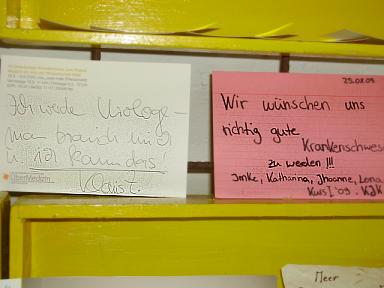 Ich werde Urologe -
man braucht mich
u. ich kann das!
Klaus T.
ÜberMedizin
25.08.09
Wir wünschen uns
richtig gute
Krankenschwes
zu werden !!!
Imke, Katharina, Jhoanne, Lena
Kurs I '09 . KJK
Meer